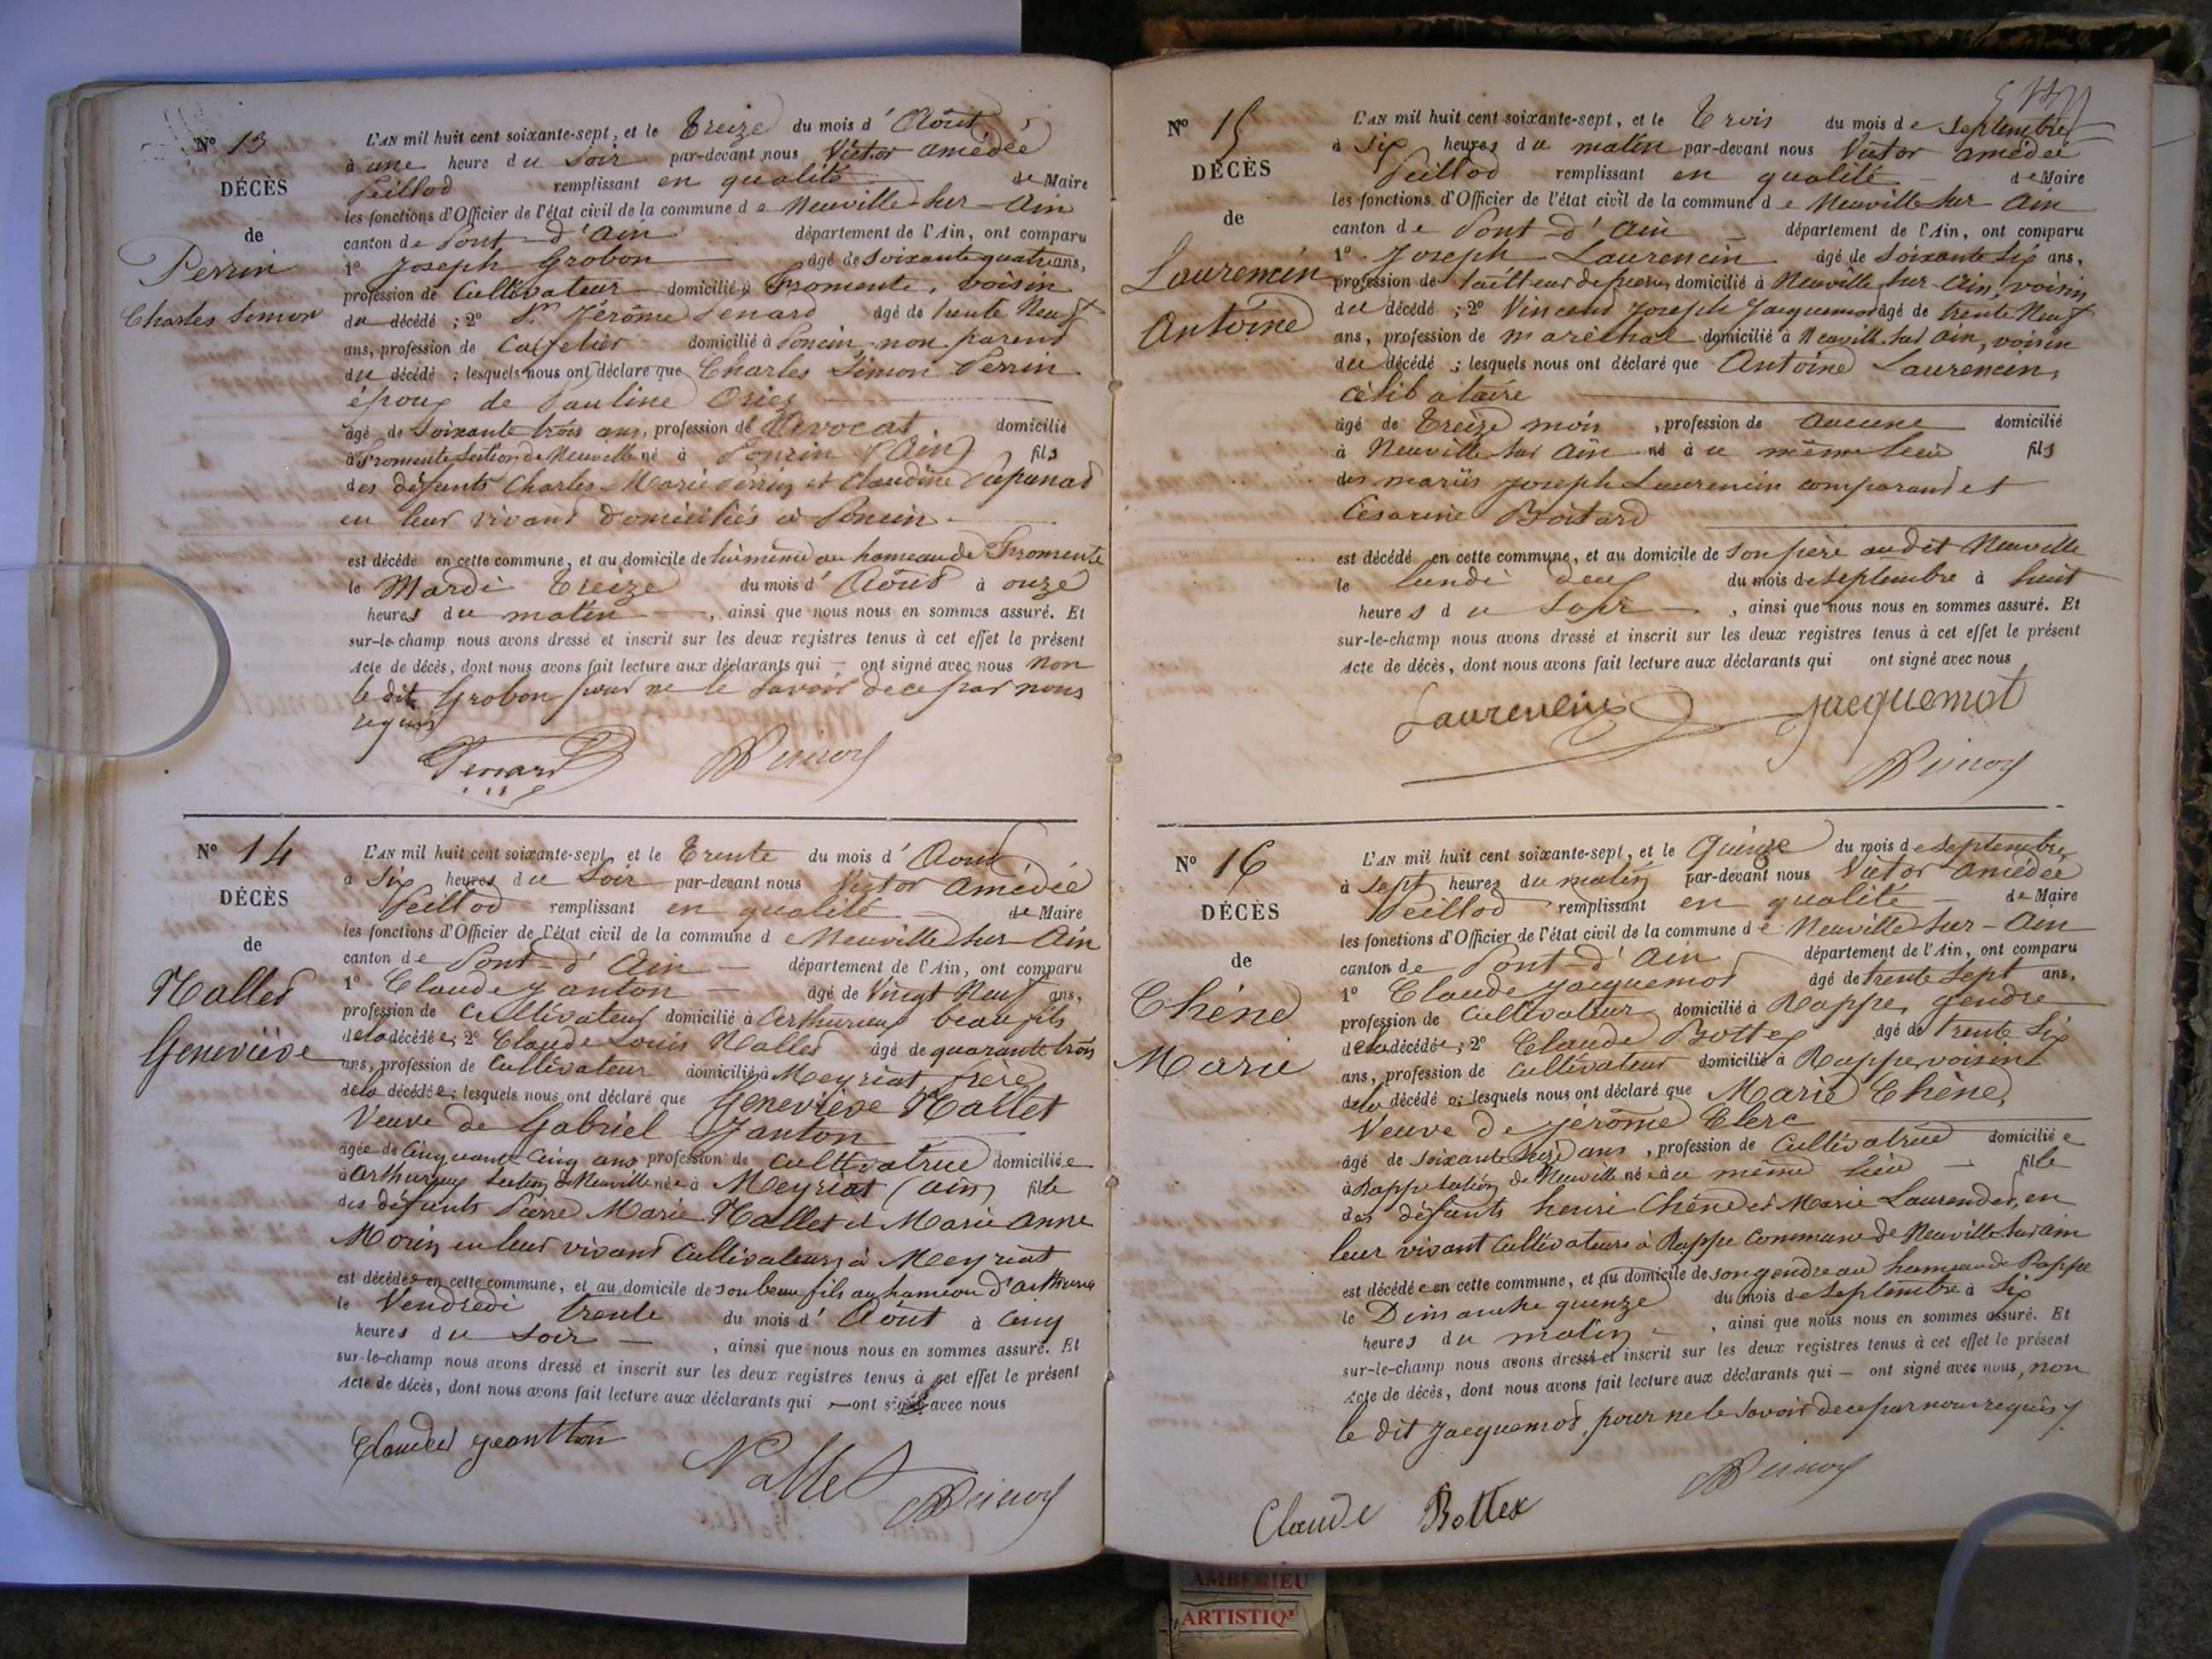 N° 13
DÉCÈS
de
Perrin
Charles Simon
L'AN mil huit cent soixante-sept, et le Treize du mois d'Août
à une heure du soir par-devant nous Victor amédée
Peillod remplissant en qualité de Maire
les fonctions d'Officier de l'état civil de la commune de Neuville sur-Ain
canton de Pont-d'Ain département de l'Ain, ont comparu
1° Joseph Grobon âgé de soixante quatre ans,
profession de Cultivateur domicilié à Fromente, voisin
du décédé ; 2° Sr Jérôme Penard âgé de trente Neuf
ans, profession de domicilié à Poncin, non parent
du décédé ; lesquels nous ont déclaré que Charles Simon Perrin
époux de Pauline
âgé de Soixante trois ans, profession de Avocat domicilié
à Fromente Section de Neuville né à Poncin (Ain), fils
des défunts Charles-Marie Perrin et Claudine
en leur vivant domiciliés à Poncin
est décédé en cette commune, et au domicile de lui même au hameau de Fromente
le Mardi Treize du mois d'Août à onze
heures du matin, ainsi que nous nous en sommes assuré. Et
sur-le-champ nous avons dressé et inscrit sur les deux registres tenus à cet effet le présent
Acte de décès, dont nous avons fait lecture aux déclarants qui — ont signé avec nous Non
le dit Grobon pour ne le savoir de ce par nous
requis
Penard
N° 14
DÉCÈS
de
Nallet
Geneviève
L'AN mil huit cent soixante-sept, et le Trente du mois d'Août
à Six heures du Soir par-devant nous Victor Amédée
Peillod remplissant en qualité de Maire
les fonctions d'Officier de l'état civil de la commune de Neuville sur-Ain
canton de Pont-d'Ain département de l'Ain, ont comparu
1° Claude Janton âgé de Vingt Neuf ans,
profession de Cultivateur domicilié à Arthurieux beau fils
de la décédée; 2° Claude Louis Nallet âgé de quarante trois
ans, profession de Cultivateur domicilié à Meyriat frère
de la décédée; lesquels nous ont déclaré que Geneviève Nallet
Veuve de Gabriel Janton
âgée de Cinquante Cinq ans profession de Cultivatrice domiciliée
à Arthurieux Section de Neuville née à Meyriat (ain) fille
des défunts Pierre Marie Nallet et Marie Anne
Morin en leur vivant Cultivateurs à Meyriat
est décédée en cette commune, et au domicile de son beau fils au hameau d'arthurieux
le Vendredi trente du mois d'Août à Cinq
heures du Soir, ainsi que nous nous en sommes assuré. Et
sur-le-champ nous avons dressé et inscrit sur les deux registres tenus à cet effet le présent
Acte de décès, dont nous avons fait lecture aux déclarants qui — ont signé avec nous
Claude geantton
Nallet
N° 15
DÉCÈS
de
Laurencin
Antoine
L'AN mil huit cent soixante-sept, et le Trois du mois de Septembre
à Six heures du matin par-devant nous Victor amédée
Peillod remplissant en qualité de Maire
les fonctions d'Officier de l'état civil de la commune de Neuville sur Ain
canton de Pont-d'Ain département de l'Ain, ont comparu
1° Joseph Laurencin âgé de Soixante Six ans,
profession de tailleur de pierres domicilié à Neuville sur-Ain, voisin
du décédé ; 2° Vincent Joseph Jacquemot âgé de trente Neuf
ans, profession de maréchal domicilié à Neuville sur ain, voisin
du décédé ; lesquels nous ont déclaré que Antoine Laurencin,
célibataire
âgé de Treize mois, profession de Aucune domicilié
à Neuville sur Ain né à u même lieu fils
des mariés Joseph Laurencin comparant et
Césarine Boitard
est décédé en cette commune, et au domicile de son père audit Neuville
le lundi deux du mois de septembre à huit
heures du Soir, ainsi que nous nous en sommes assuré. Et
sur-le-champ nous avons dressé et inscrit sur les deux registres tenus à cet effet le présent
Acte de décès, dont nous avons fait lecture aux déclarants qui ont signé avec nous
Laurencin Jacquemot
N° 16
DÉCÈS
de
Chêne
Marie
L'AN mil huit cent soixante-sept, et le Quinze du mois de Septembre
à sept heures du matin par-devant nous Victor amédée
Peillod remplissant en qualité de Maire
les fonctions d'Officier de l'état civil de la commune de Neuville sur-Ain
canton de Pont-d'Ain département de l'Ain, ont comparu
1° Claude Jacquemot âgé de trente Sept ans,
profession de Cultivateur domicilié à Rappe, gendre
de la décédée; 2° Claude Bottex âgé de trente Six
ans, profession de Cultivateur domicilié à Rappe voisin
de la décédée; lesquels nous ont déclaré que Marie Chêne,
Veuve de Jérôme Clerc
âgé de Soixante Seize ans, profession de Cultivatrice domiciliée
à Rappe Section de Neuville né à u même lieu fille
des défunts henri Chêne et Marie Laurendet, en
leur vivant Cultivateurs à Rappe Commune de Neuville sur ain
est décédée en cette commune, et au domicile de son gendre au hameau de Rappe
le Dimanche quinze du mois de Septembre à Six
heures du matin, ainsi que nous nous en sommes assuré. Et
sur-le-champ nous avons dressé et inscrit sur les deux registres tenus à cet effet le présent
Acte de décès, dont nous avons fait lecture aux déclarants qui — ont signé avec nous, non
le dit Jacquemot, pour ne le savoir de ce par nous requis
Claude Bottex
AMBERIEU
ARTISTIQ